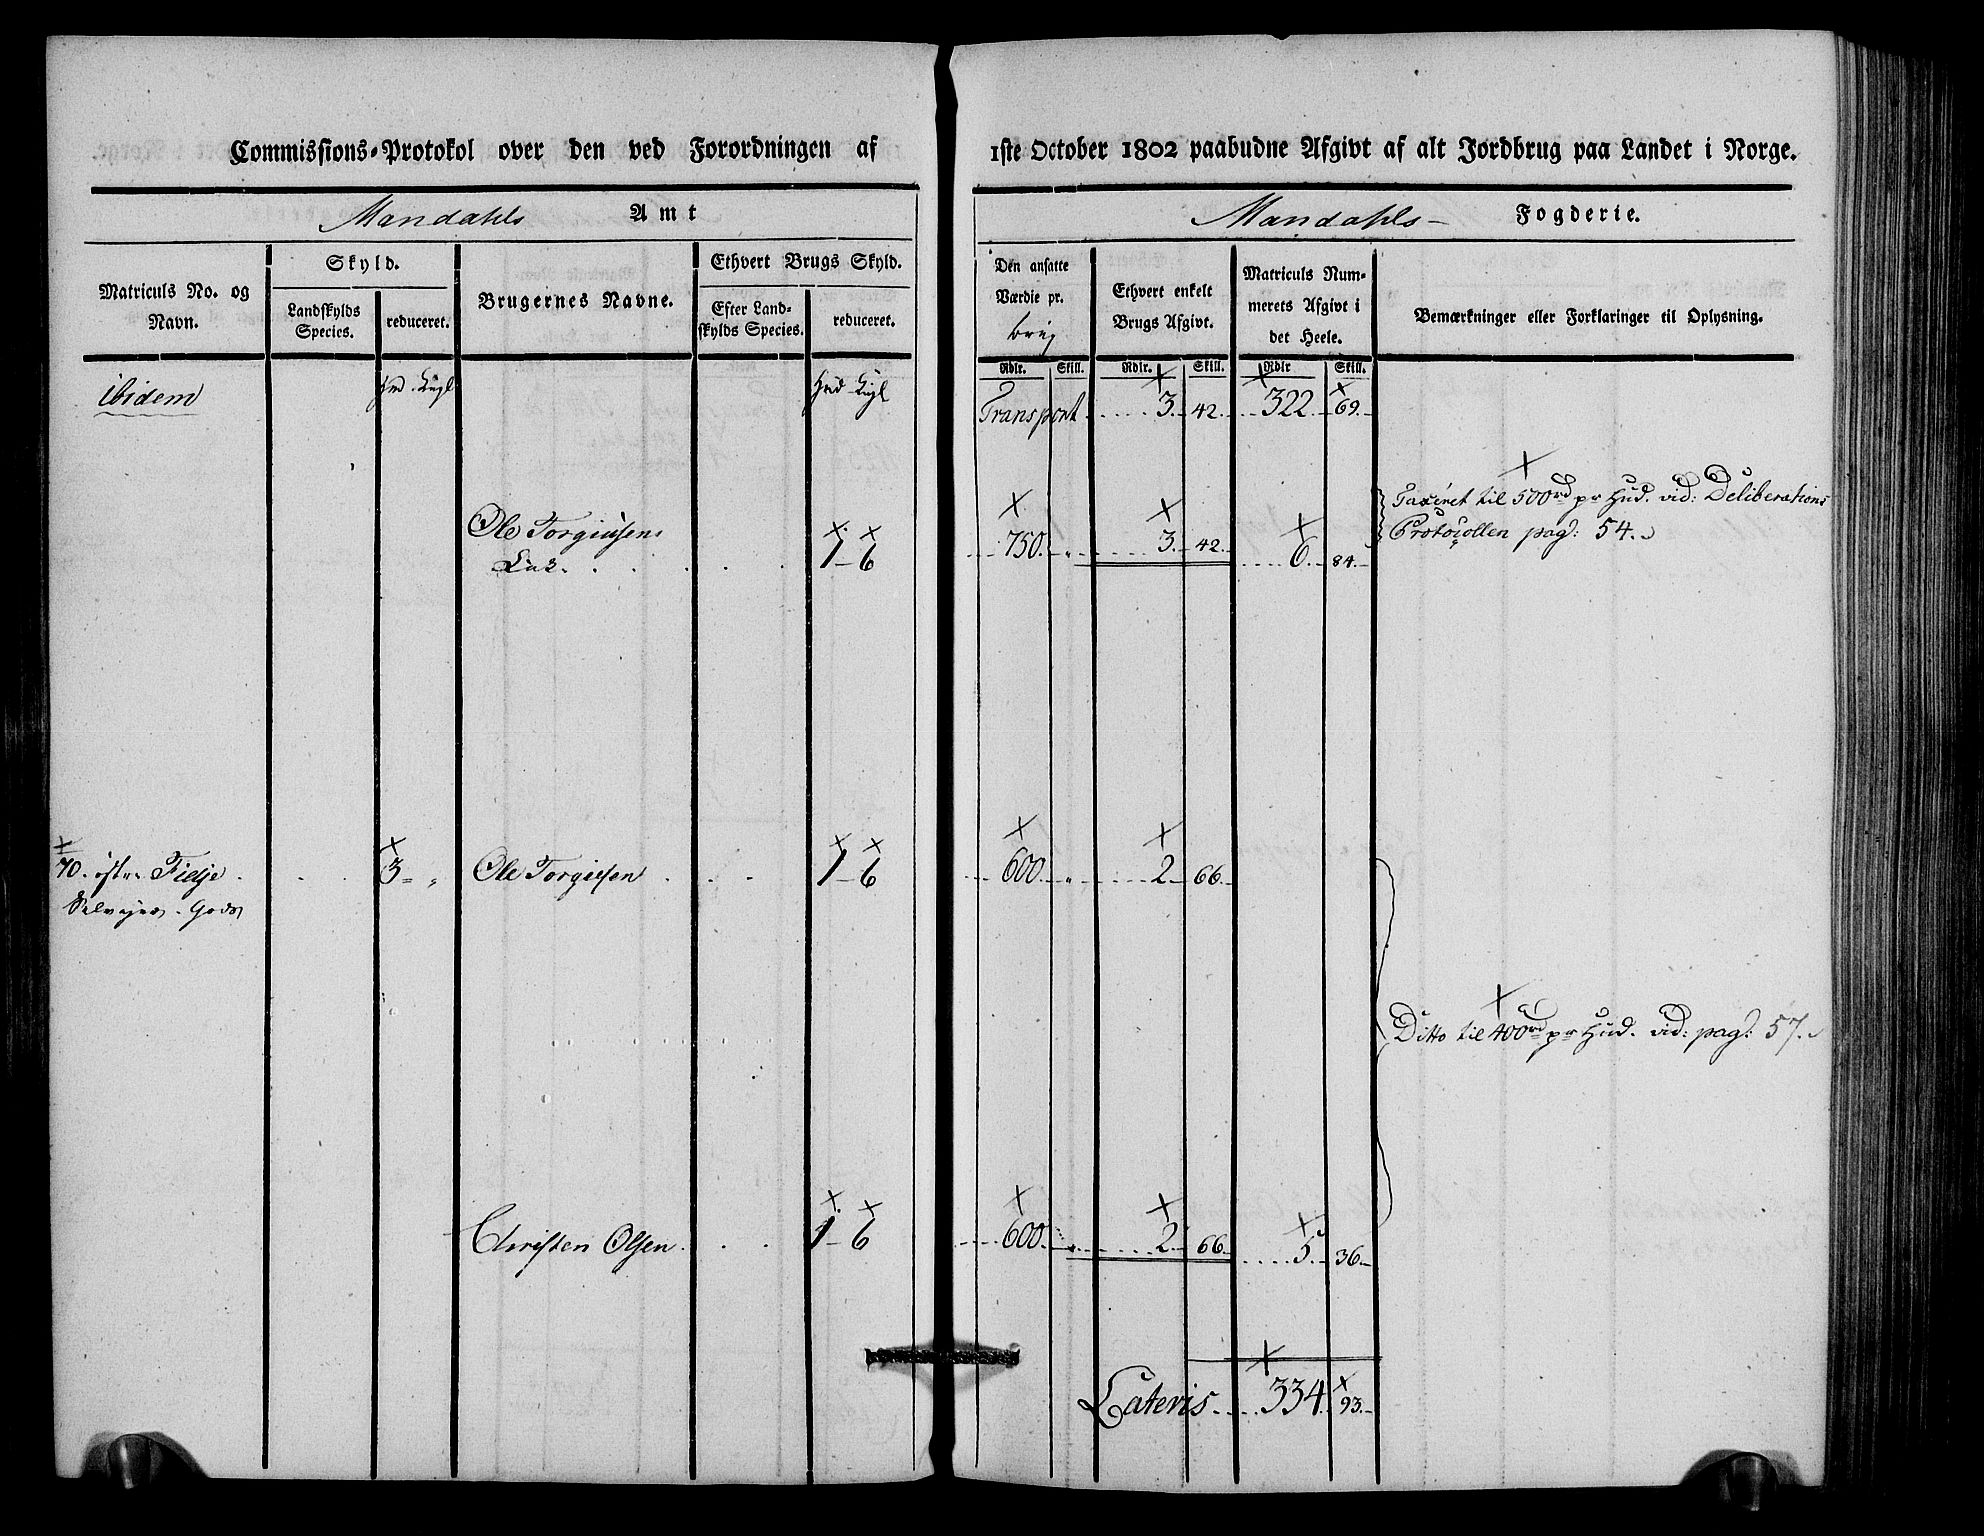 Commissions-Protokol over den ved Forordningen af 1ste October 1802 paabudne Afgivt af alt Jordbrug paa Landet i Norge.
Mandahls Amt
Mandahls Fogderie.
Matriculs No. og Navn.
Skyld.
Landskylds Species.
reduceret.
Brugernes Navne.
Ethvert Brugs Skyld.
Efter Landskylds Species.
reduceret.
Den ansatte Værdie pr. brug
Ethvert enkelt Brugs Afgivt.
Matriculs Nummerets Afgivt i det Heele.
Bemærkninger eller Forklaringer til Oplysning.
Rdlr. Skill. Rdlr. Skill. Rdlr Skill.
ibidem Hud Kugl Hud Kugl Transport 3. 42. 322. 69.
Ole Torgiusens
1 - 6 750. „ 3. 42. 6. 84.
Taxeret til 500 rd pr Hud. vid: Deliberations
Protocollen pag: 54.
70. Fielje 3 - „ Ole Torgiesen 1 - 6 600. „ 2. 66.
Selveyer Gods
Ditto til 400 rd pr Hud. vid: pag: 57.
Christen Olsen 1 - 6 600. „ 2. 66. 5. 36.
Lateris 334. 93.